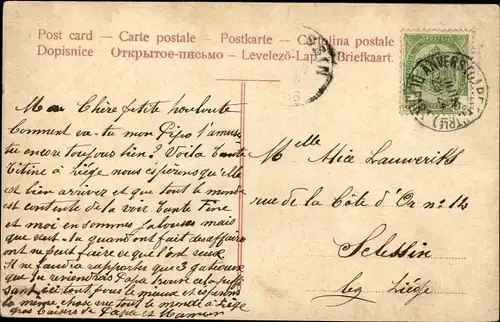 Post card — Carte postale — Postkarte — Cartolina postale
Dopisnice — Открытое-письмо — Levelező-Lap — Briefkaart.
ANVERS
Ma Chère petite
Comment va-tu mon Pipo l'amuse
tu encore toujours bien? Voila Tante
Titine à Liége nous espérons qu'elle
est bien arrivez et que tout le monde
est contente de la voir Tante Fine
et moi en sommes jalouses mais
que veut-tu quand ont fait des affaires
ont ne peut faire ce qu'ont veux
Il ne faudra rapporter que 3
que tu reviendras Papa
tout le mieux et espérons
la même chose que tout le monde à Liége
gros baisers de Papa et Maman
Melle Alice Lauweriks
rue de la Côte d'Or no 14
Sclessin
lez Liége